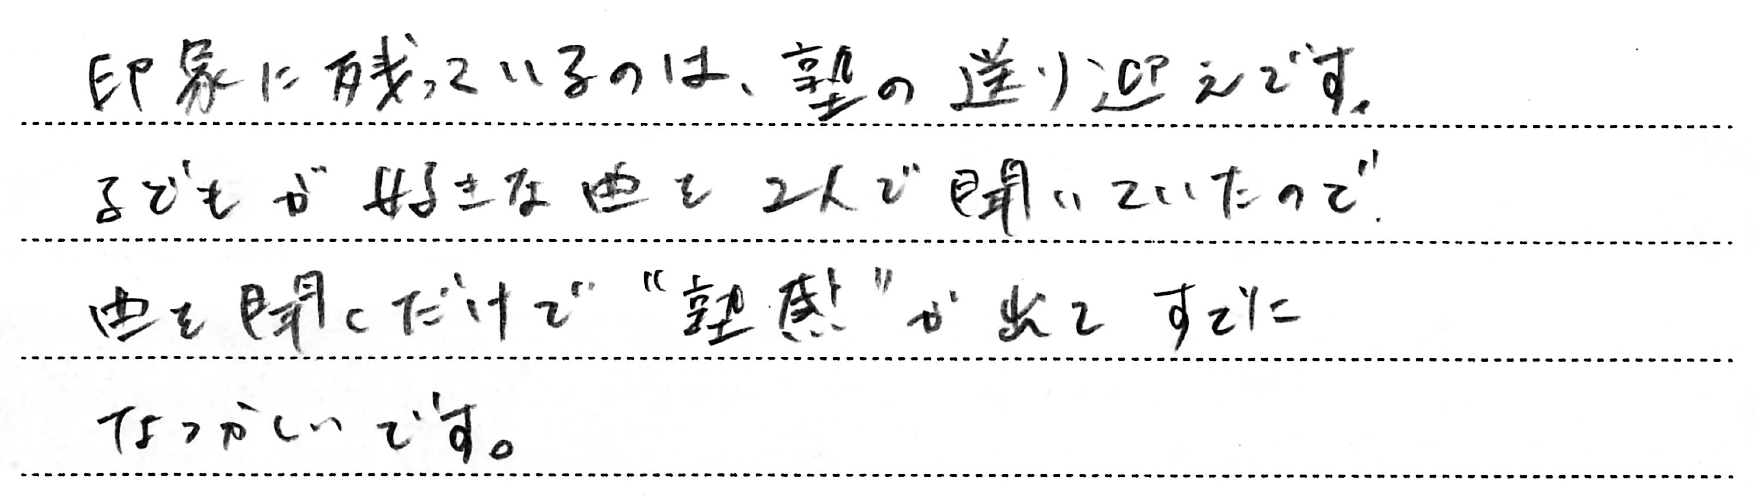 印象に残っているのは、塾の送り迎えです。
子どもが好きな曲を2人で聞いていたので
曲を聞くだけで"塾感"が出てすでに
なつかしいです。